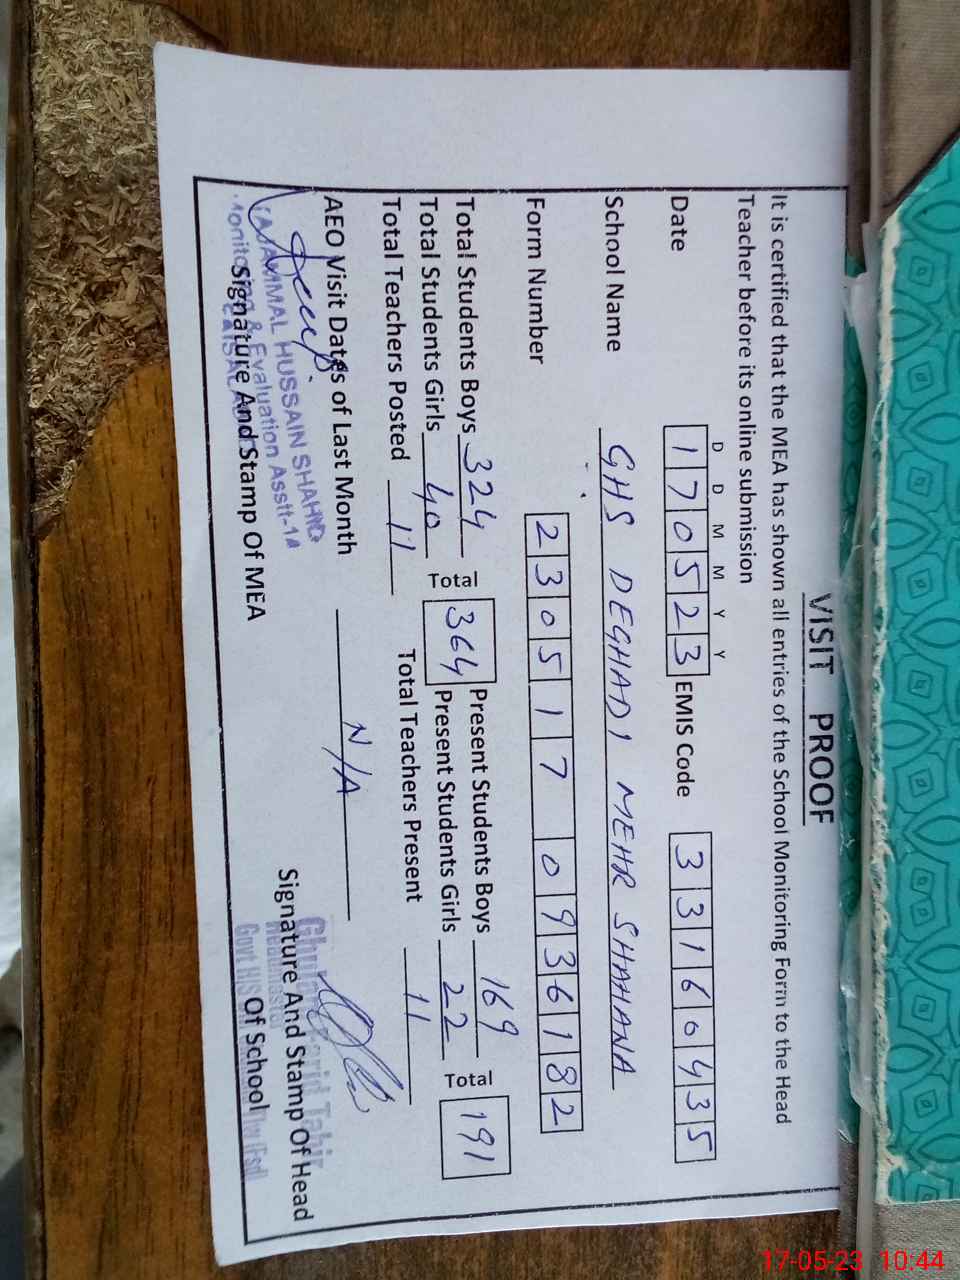 VISIT PROOF
It is certified that the MEA has shown all entries of the School Monitoring Form to the Head
Teacher before its online submission
D D M M Y Y
Date 170523 EMIS Code 33160435
School Name GHS DEGHADI MEHR SHAHANA
Form Number 230517 0936182
Total Students Boys 324 Total 364 Present Students Boys 169 Total 191
Total Students Girls 40 Present Students Girls 22
Total Teachers Posted 11 Total Teachers Present 11
AEO Visit Dates of Last Month N/A
HUSSAIN SHAHID
Monitoring & Evaluation Asstt-1A
Signature And Stamp Of MEA
Signature And Stamp Of Head
Of School
17-05-23 10:44